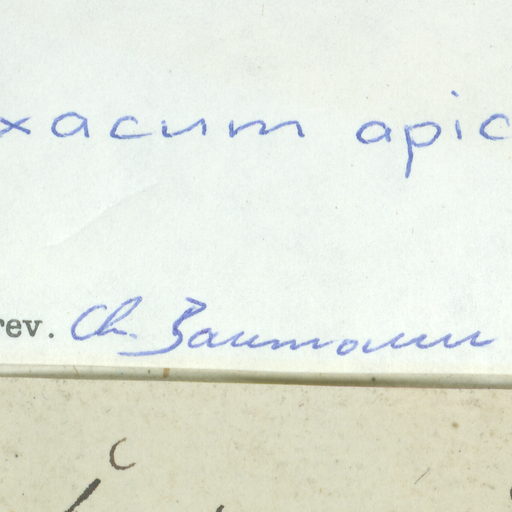 xacum apic
rev. Ch. Baumann